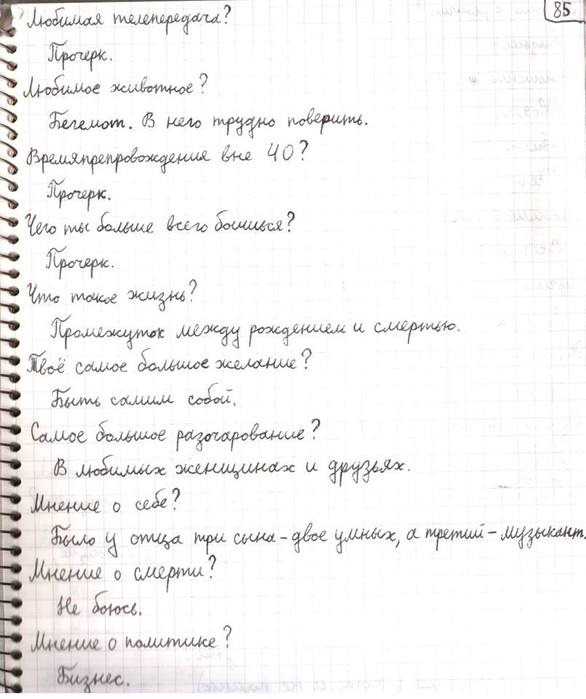 85
Любимая телепередача?
Прочерк.
Любимое животное?
Бегемот. В него трудно поверить.
Времяпрепровождения вне ЧО?
Прочерк.
Чего ты больше всего боишься?
Прочерк.
Что такое жизнь?
Промежуток между рождением и смертью.
Твоё самое большое желание?
Быть самим собой.
Самое большое разочарование?
В любимых женщинах и друзьях.
Мнение о себе?
Было у отца три сына - двое умных, а третий - музыкант.
Мнение о смерти?
Не боюсь.
Мнение о политике?
Бизнес.